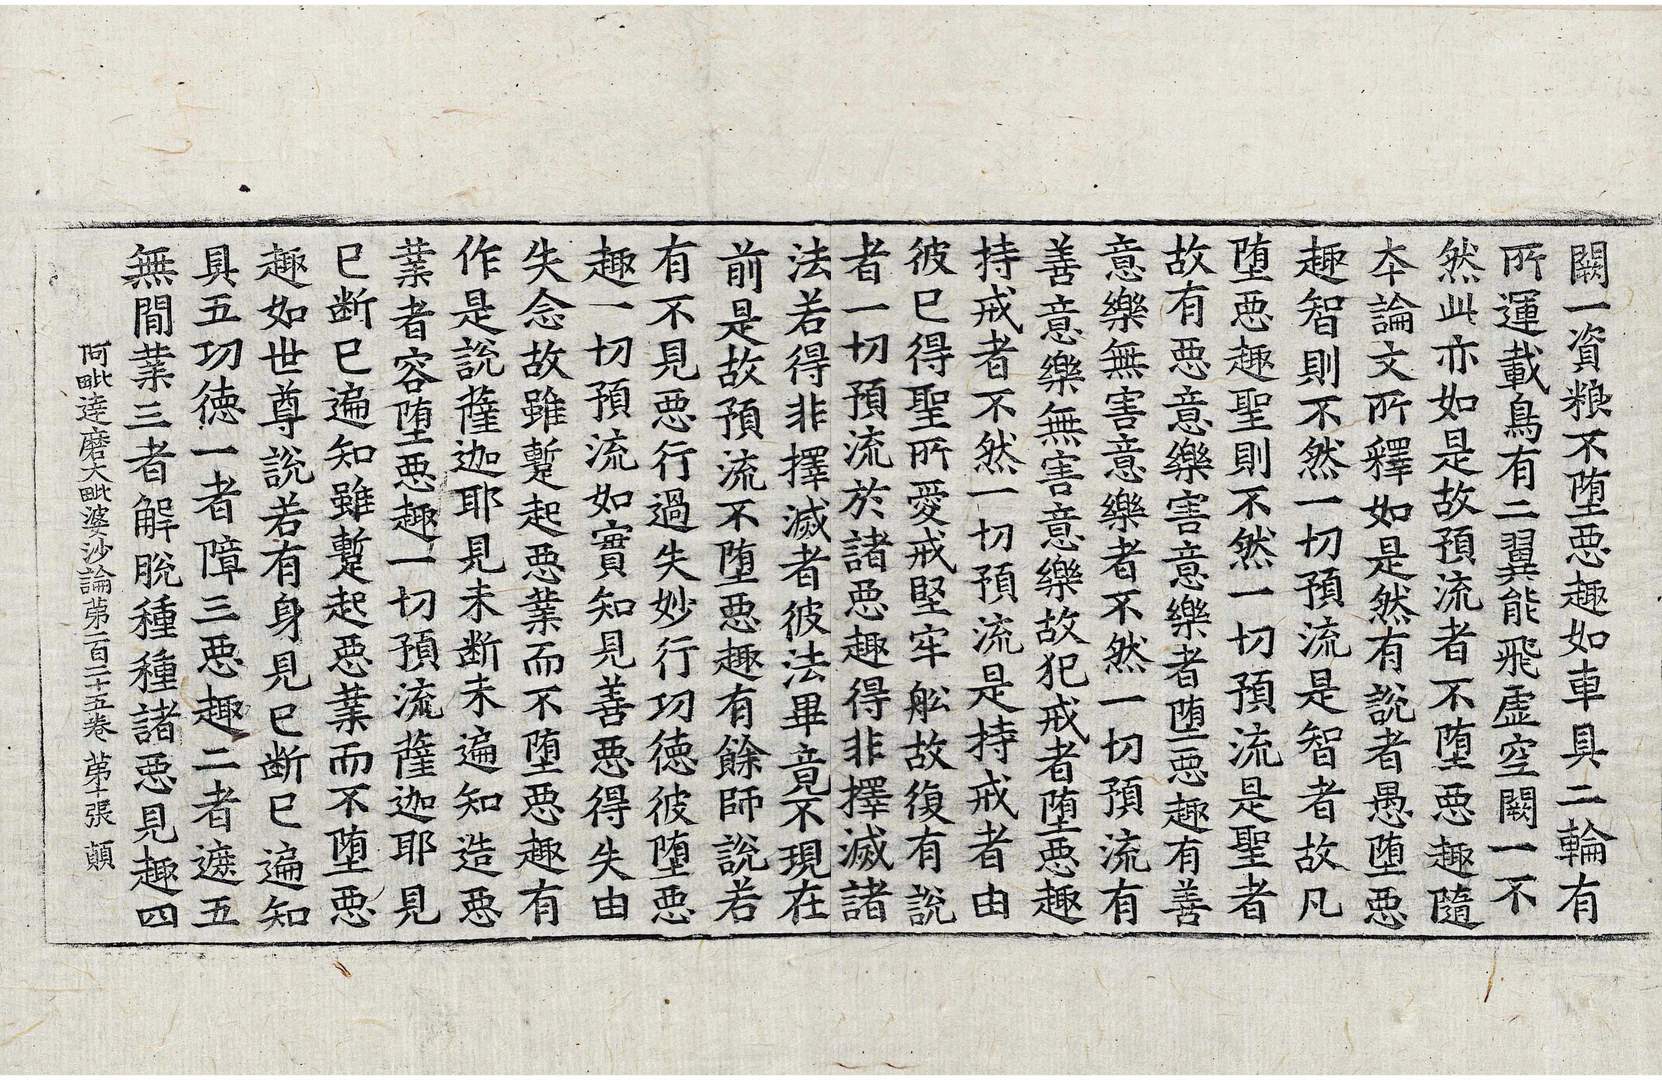 闕一資粮不堕惡趣如車具二輪有
所運載鳥有二翼能飛虛空闕一不
然此亦如是故預流者不堕惡趣隨
夲論文所釋如是然有說者愚堕惡
趣智則不然一切預流是智者故凡
堕惡趣聖則不然一切預流是聖者
故有惡意樂害意樂者堕惡趣有善
意樂無害意樂者不然一切預流有
善意樂無害意樂故犯戒者堕惡趣
持戒者不然一切預流是持戒者由
彼已得聖所愛戒堅牢舩故復有說
者一切預流於諸惡趣得非擇滅諸
法若得非擇滅者彼法畢竟不現在
前是故預流不堕惡趣有餘師說若
有不見惡行過失妙行功德彼堕惡
趣一切預流如實知見善惡得失由
失念故雖蹔起惡業而不堕惡趣有
作是說薩迦耶見未断未遍知造惡
業者容堕惡趣一切預流薩迦耶見
已断已遍知雖蹔起惡業而不堕惡
趣如世尊說若有身見已断已遍知
具五功德一者障三惡趣二者遮五
無間業三者解脫種種諸惡見趣四
阿毗達磨大毗婆沙論第一百二十五卷 第十張 顛